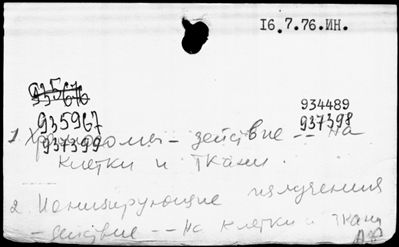 16.7.76.ИН.
935967
934489
937398
937399
1. - действие -- на
клетки и ткани.
2. Ионизирующие излучения
- действие -- на клетки и ткани